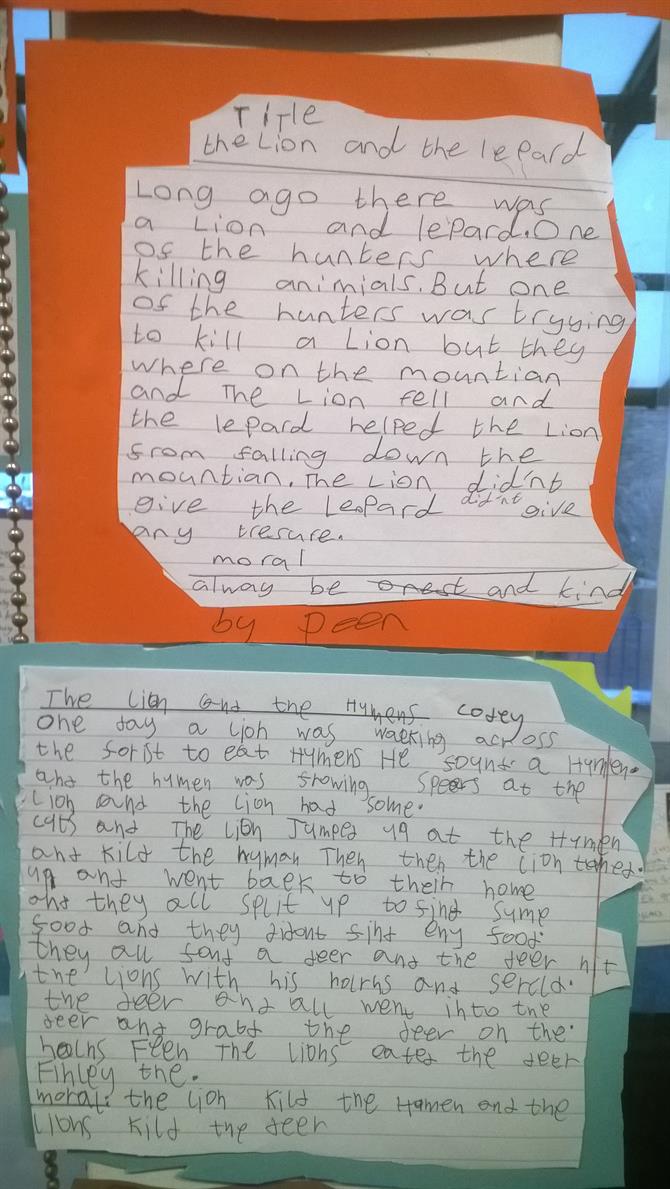 Title
the Lion and the lepard
Long ago there was
a Lion and lepard. One
of the hunters where
killing animials. But one
of the hunters was tryying
to kill a Lion but they
where on the mountian
and The Lion fell and
the lepard helped the Lion
from falling down the
mountian. The Lion did'nt
give the Leopard did'nt give
any tresure.
moral
alway be onest and kind
by Deen
The lion and the Hymens codey
one day a lion was walking across
the forist to eat Hymens He found a Hymen.
and the hymen was frowing Spears at the
Lion and the Lion had some.
cyts and The Lion Jumped up at the Hymen
and kild the hyman Then then the Lion
up and went back to their home
and they all split up to find symp
food and they didont find eny food.
they all fond a deer and the deer hit
the lions with his holrns and
the deer and all went into the
deer and grabd the deer on the.
holns Feen The lions eated the deer
Finley the.
moral: the lion kild the Hymen and the
Lions kild the deer